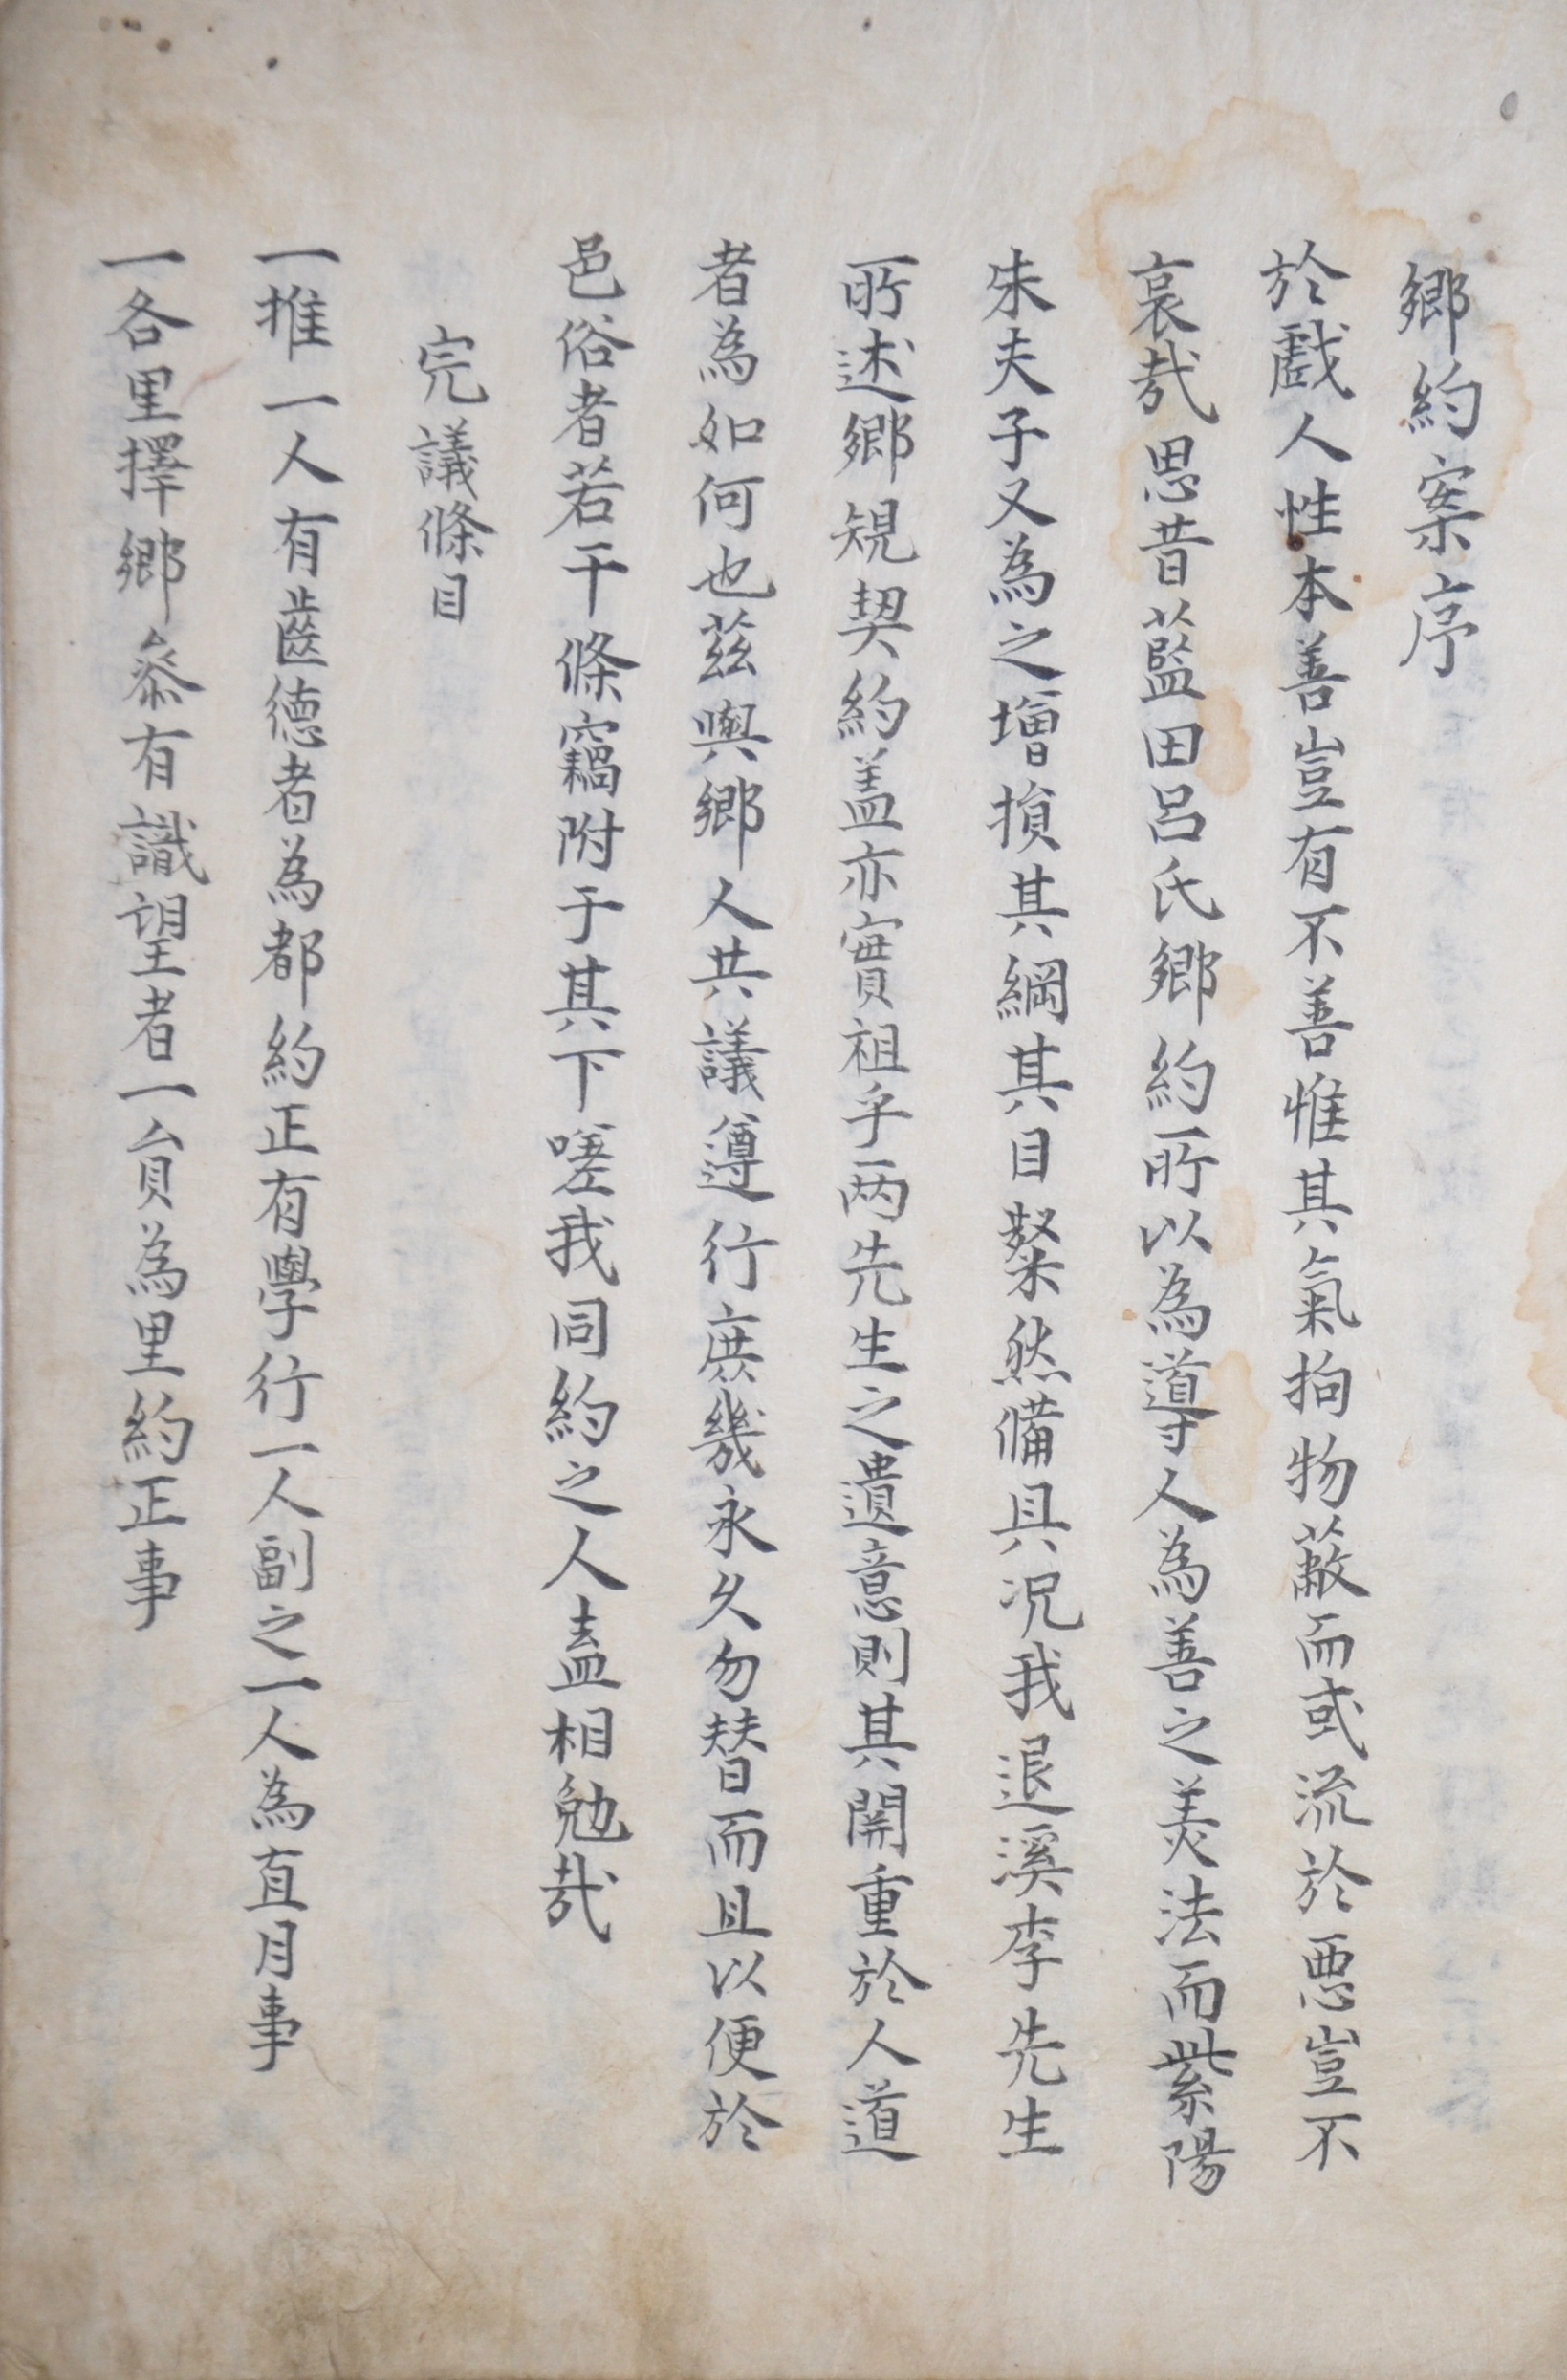 鄉約案序
於戲人性本善豈有不善惟其氣拘物蔽而或流於惡豈不
哀哉思昔藍田呂氏鄉約所以為導人為善之美法而紫陽
朱夫子又為之增損其綱其目粲然備具况我退溪李先生
所述鄉規契約盖亦實祖乎两先生之遺意則其關重於人道
者為如何也茲與鄉人共議遵行庶幾永久勿替而且以便於
邑俗者若干條竊附于其下嗟我同約之人盍相勉哉
完議條目
一推一人有齒德者為都約正有學行一人副之一人為直月事
一各里擇鄉叅有識望者一負為里約正事